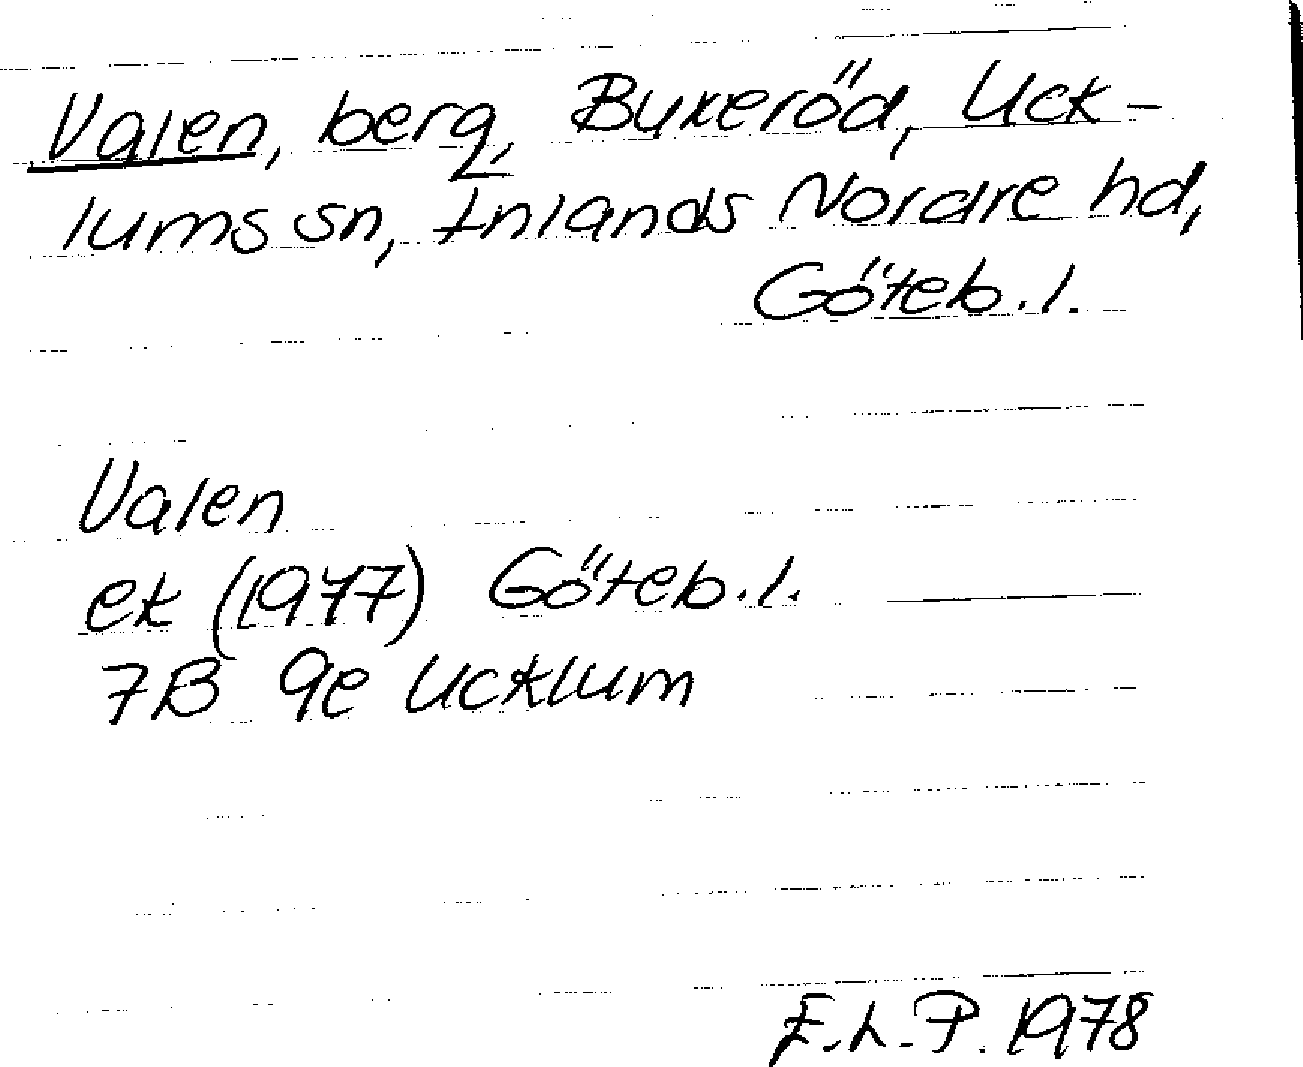 Valen, berg, Bukeröd, Uck-
lums sn, Inlands Nordre hd,
Göteb. l.
Valen
ek (1977) Göteb. l.
7B 9e Ucklum
E.L.P. 1978